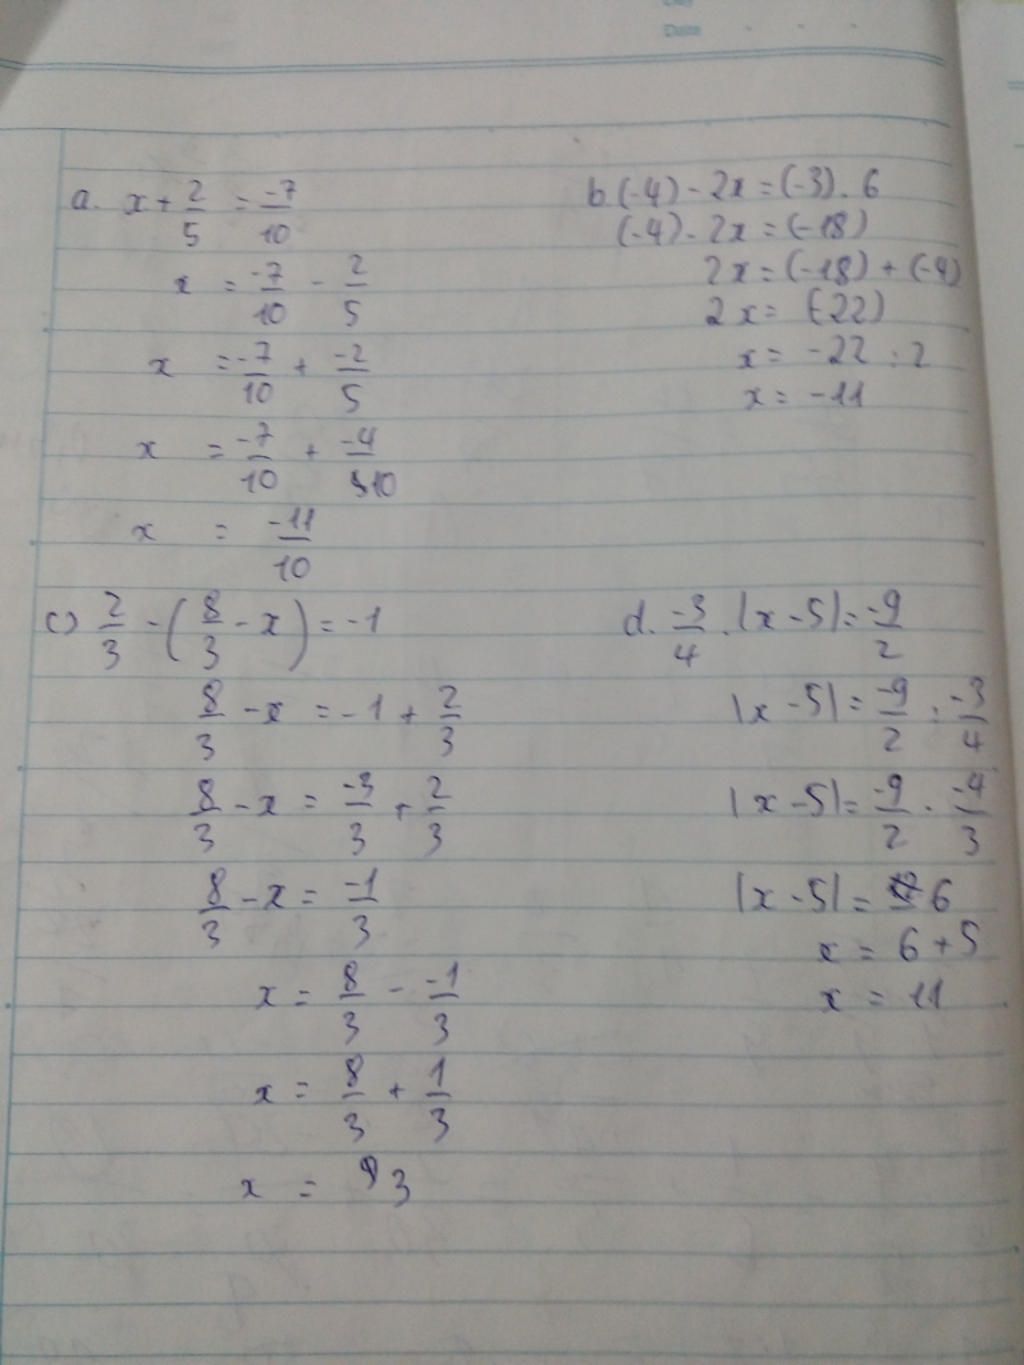 Date
a. x + 2/5 = -7/10
x = -7/10 - 2/5
x = -7/10 + -2/5
x = -7/10 + -4/10
x = -11/10
b (-4) - 2x = (-3) . 6
(-4) - 2x = (-18)
2x = (-18) + (-4)
2x = (-22)
x = -22 : 2
x = -11
c) 2/3 - (8/3 - x) = -1
8/3 - x = -1 + 2/3
8/3 - x = -3/3 + 2/3
8/3 - x = -1/3
x = 8/3 - -1/3
x = 8/3 + 1/3
x = 3
d. -3/4 . |x - 5| = -9/2
|x - 5| = -9/2 : -3/4
|x - 5| = -9/2 . -4/3
|x - 5| = 6
x = 6 + 5
x = 11